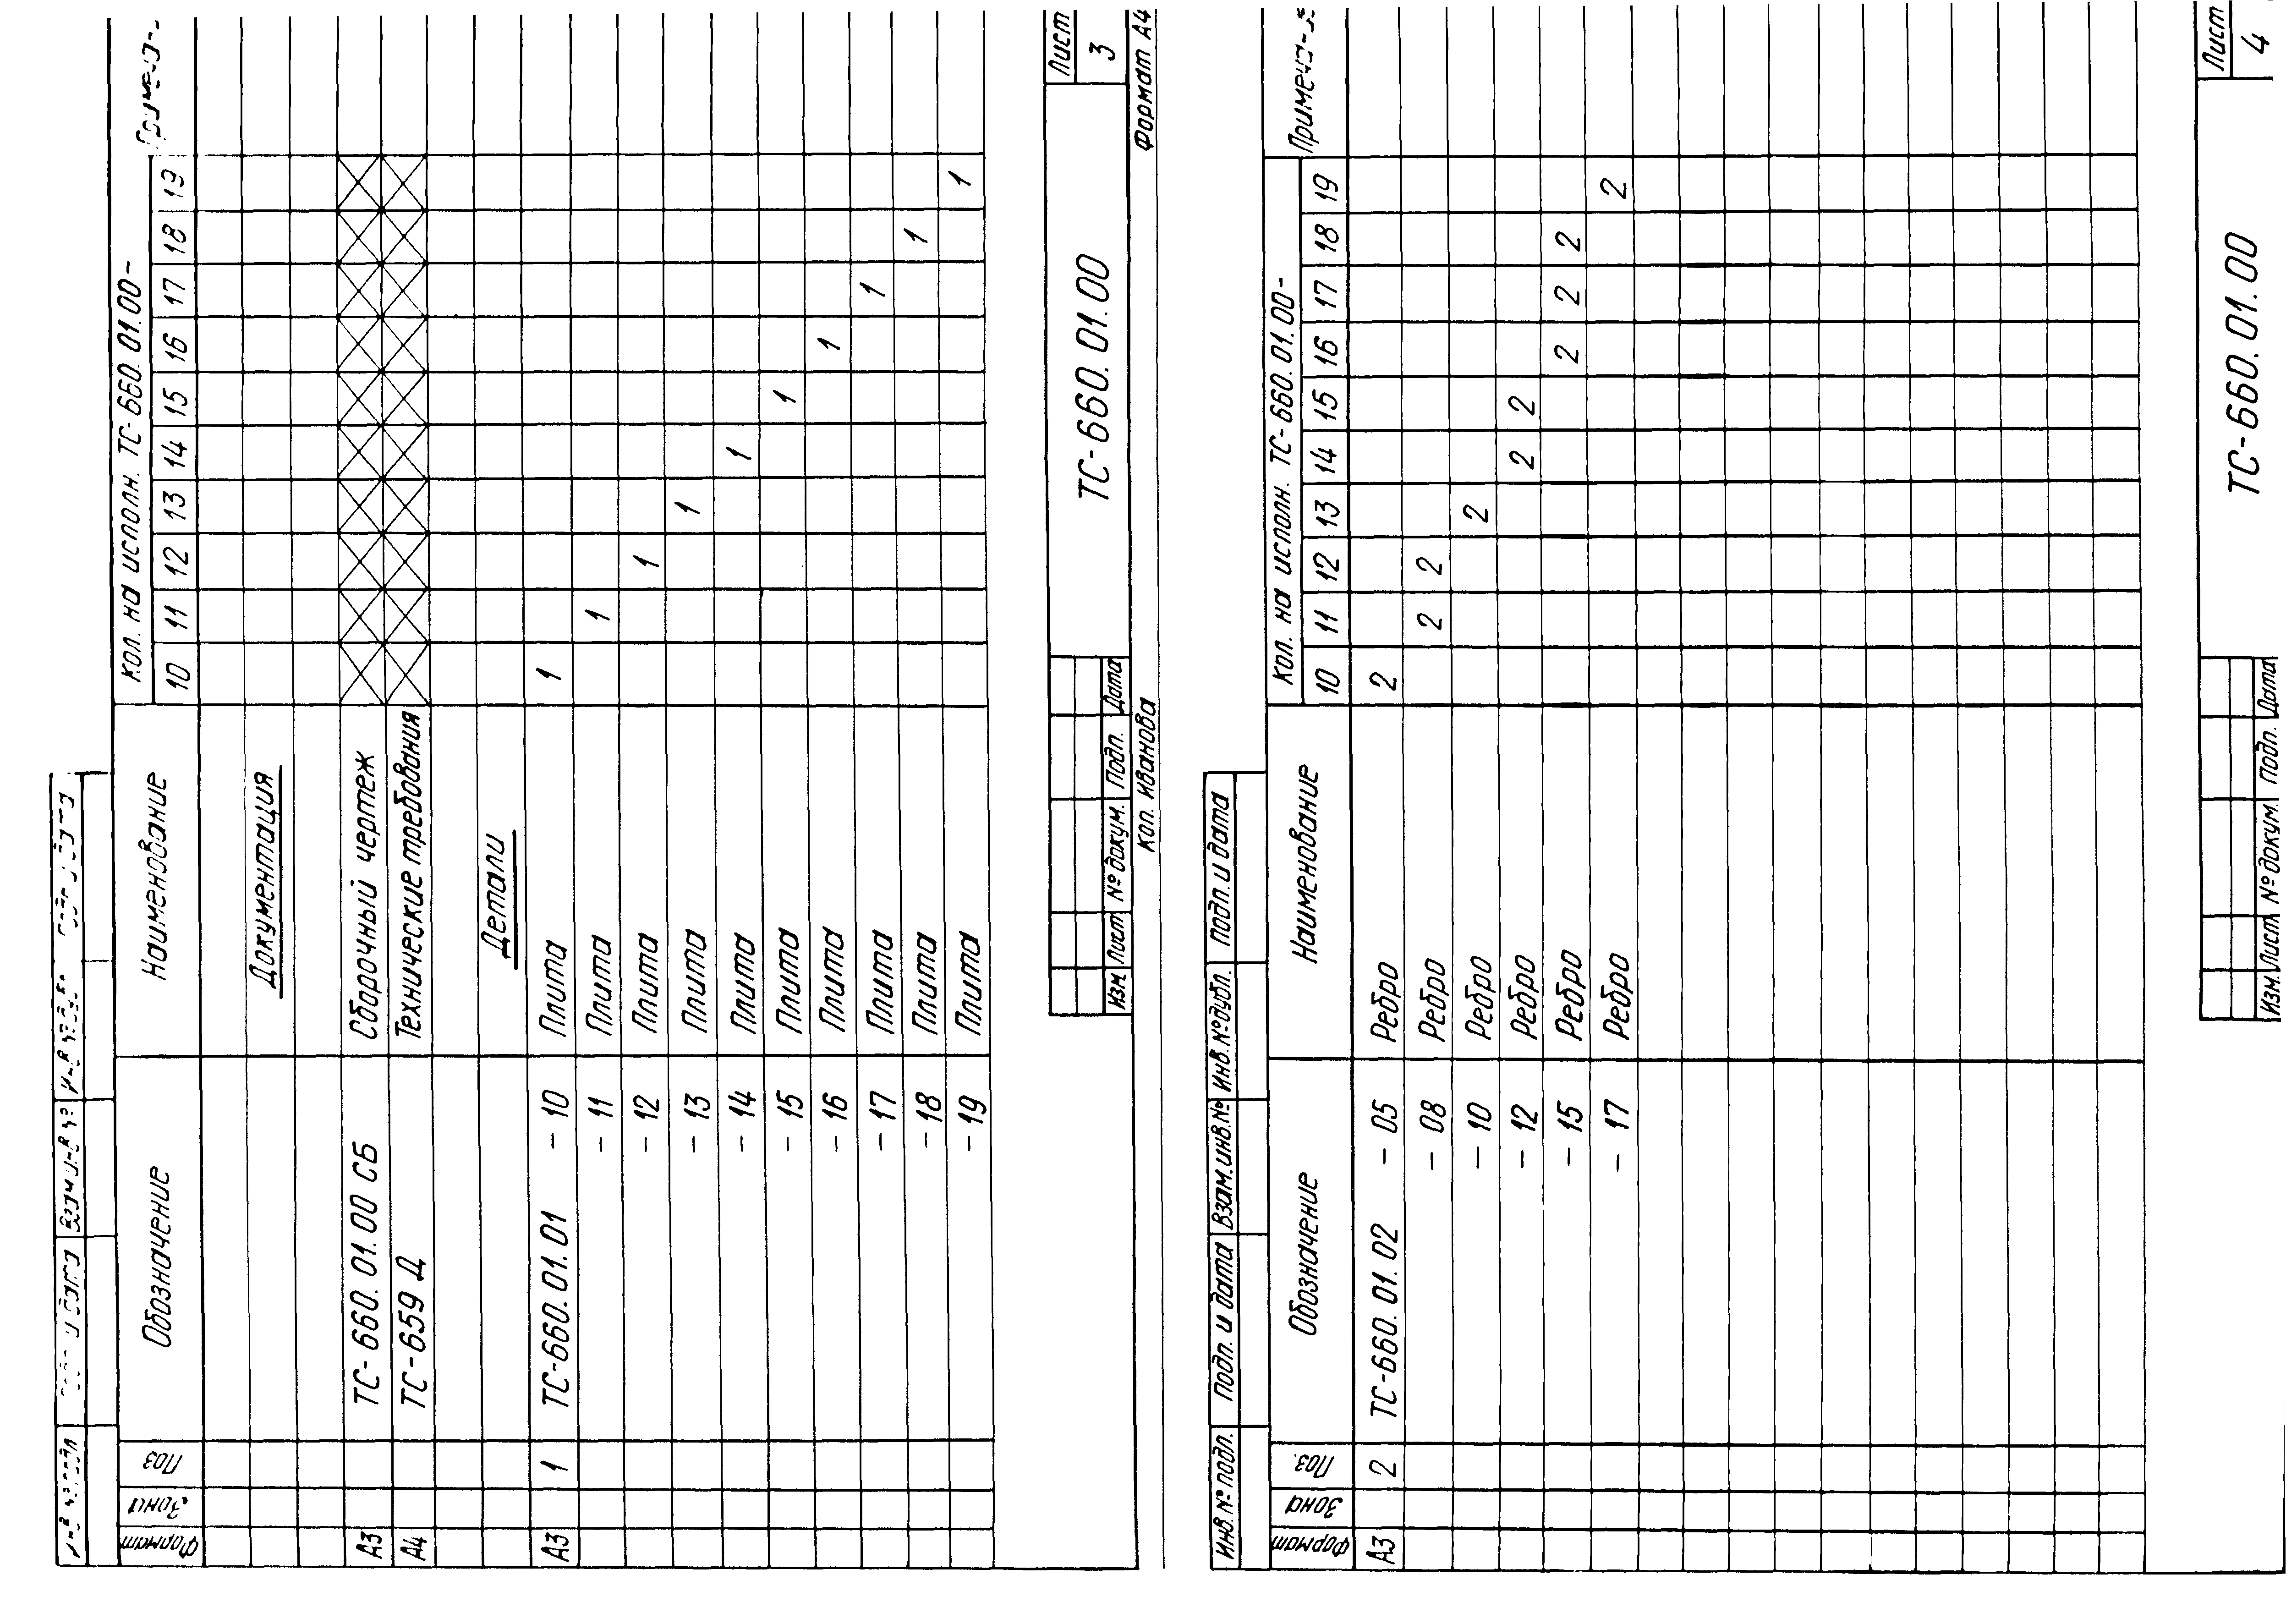 Формат Зона Поз Обозначение Наименование Кол. на исполн. ТС-660.01.00-
10 11 12 13 14 15 16 17 18 19
Документация
А3 ТС-660.01.00 СБ Сборочный чертеж
А4 ТС-659 Д Технические требования
Детали
А3 1 ТС-660.01.01 - 10 Плита 1
- 11 Плита 1
- 12 Плита 1
- 13 Плита 1
- 14 Плита 1
- 15 Плита 1
- 16 Плита 1
- 17 Плита 1
- 18 Плита 1
- 19 Плита 1
Изм. Лист № докум. Подп. Дата
ТС-660.01.00
Лист
3
Коп. Иванова
Формат А4
Инв. № подл. Подп. и дата Взам. инв. № Инв. № дубл. Подп. и дата
Формат Зона Поз. Обозначение Наименование Кол. на исполн. ТС-660.01.00-
10 11 12 13 14 15 16 17 18 19
А3 2 ТС-660.01.02 - 05 Ребро 2
- 08 Ребро 2 2
- 10 Ребро 2
- 12 Ребро 2 2
- 15 Ребро 2 2 2
- 17 Ребро 2
Изм. Лист № докум. Подп. Дата
ТС-660.01.00
Лист
4